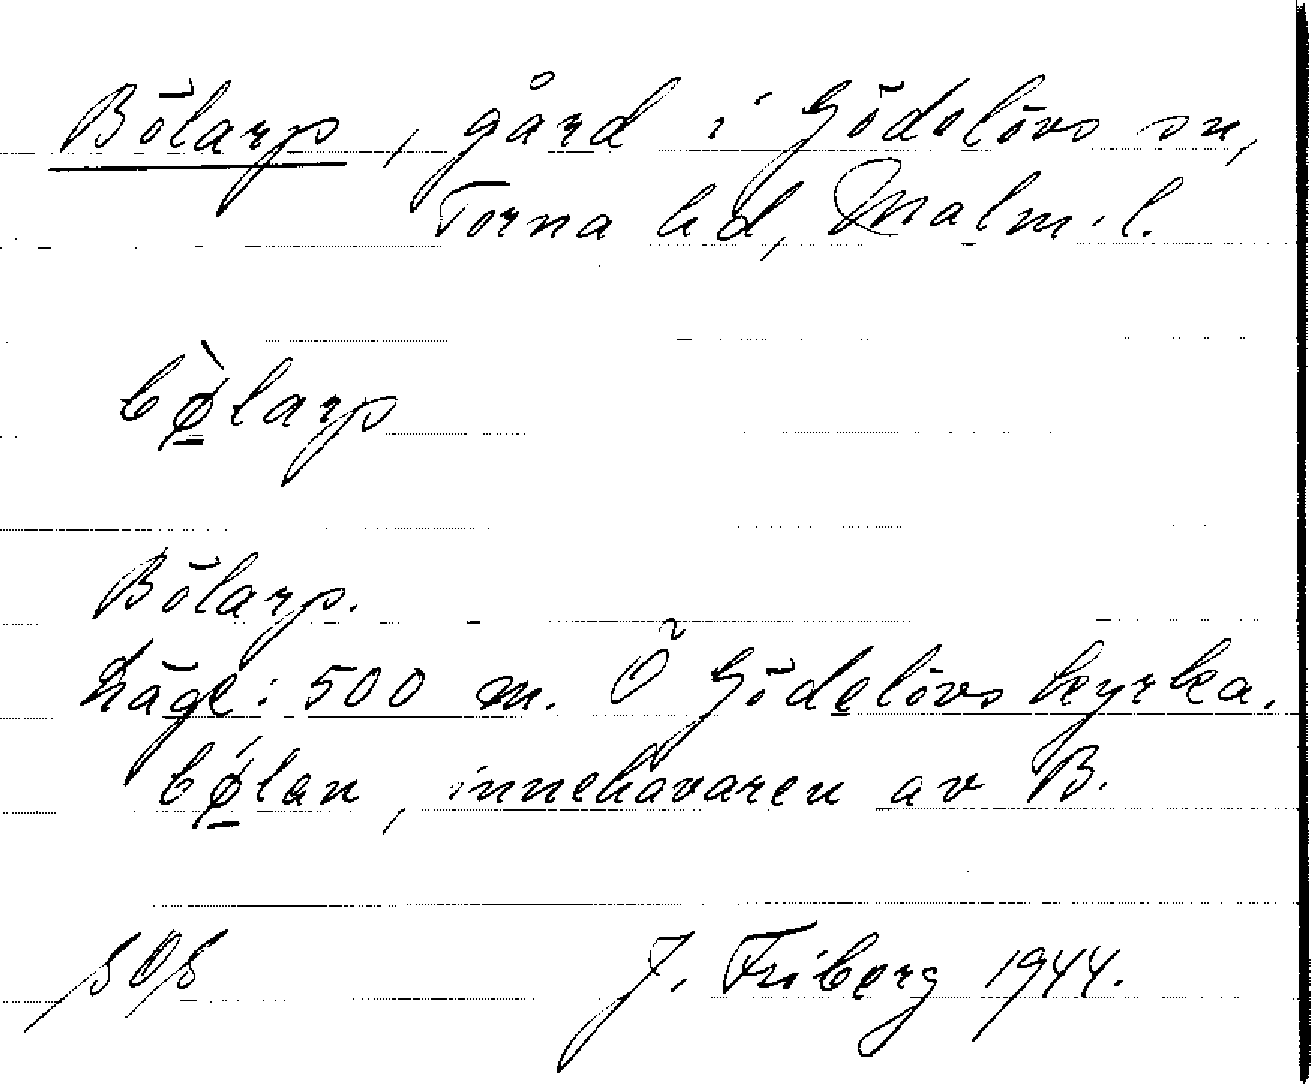 Bölarp, gård i Gödelövs sn,
Torna hd, Malm. l.
bø̱̀larp
Bölarp.
Läge: 500 m. Ö Gödelövs kyrka.
bǿ̱lan, innehavaren av B.
J. Friberg 1944.